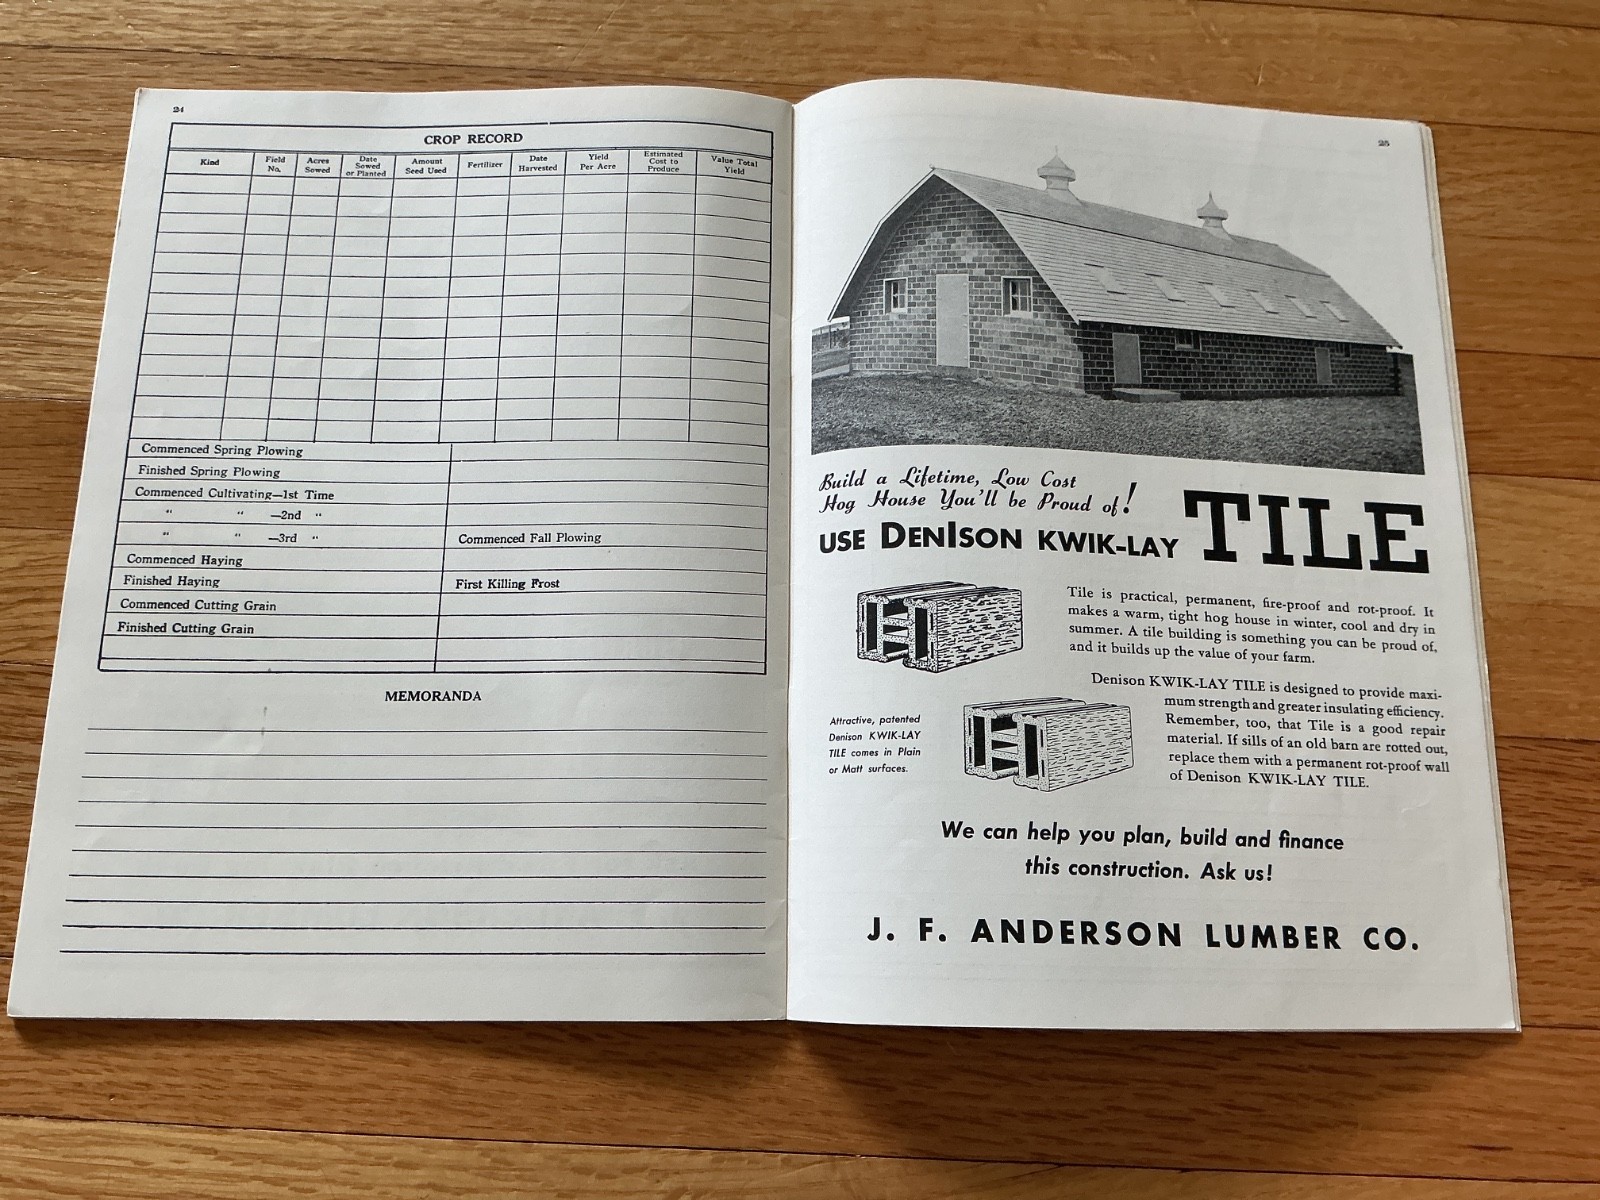 24
CROP RECORD
Kind
Field
No.
Acres
Sowed
Date
Sowed
or Planted
Amount
Seed Used
Fertilizer
Date
Harvested
Yield
Per Acre
Estimated
Cost to
Produce
Value Total
Yield
Commenced Spring Plowing
Finished Spring Plowing
Commenced Cultivating—1st Time
" " —2nd "
" " —3rd "
Commenced Fall Plowing
Commenced Haying
Finished Haying
First Killing Frost
Commenced Cutting Grain
Finished Cutting Grain
MEMORANDA
25
Build a Lifetime, Low Cost
Hog House You'll be Proud of!
USE DENISON KWIK-LAY TILE
Tile is practical, permanent, fire-proof and rot-proof. It
makes a warm, tight hog house in winter, cool and dry in
summer. A tile building is something you can be proud of,
and it builds up the value of your farm.
Denison KWIK-LAY TILE is designed to provide maxi-
mum strength and greater insulating efficiency.
Remember, too, that Tile is a good repair
material. If sills of an old barn are rotted out,
replace them with a permanent rot-proof wall
of Denison KWIK-LAY TILE.
Attractive, patented
Denison KWIK-LAY
TILE comes in Plain
or Matt surfaces.
We can help you plan, build and finance
this construction. Ask us!
J. F. ANDERSON LUMBER CO.